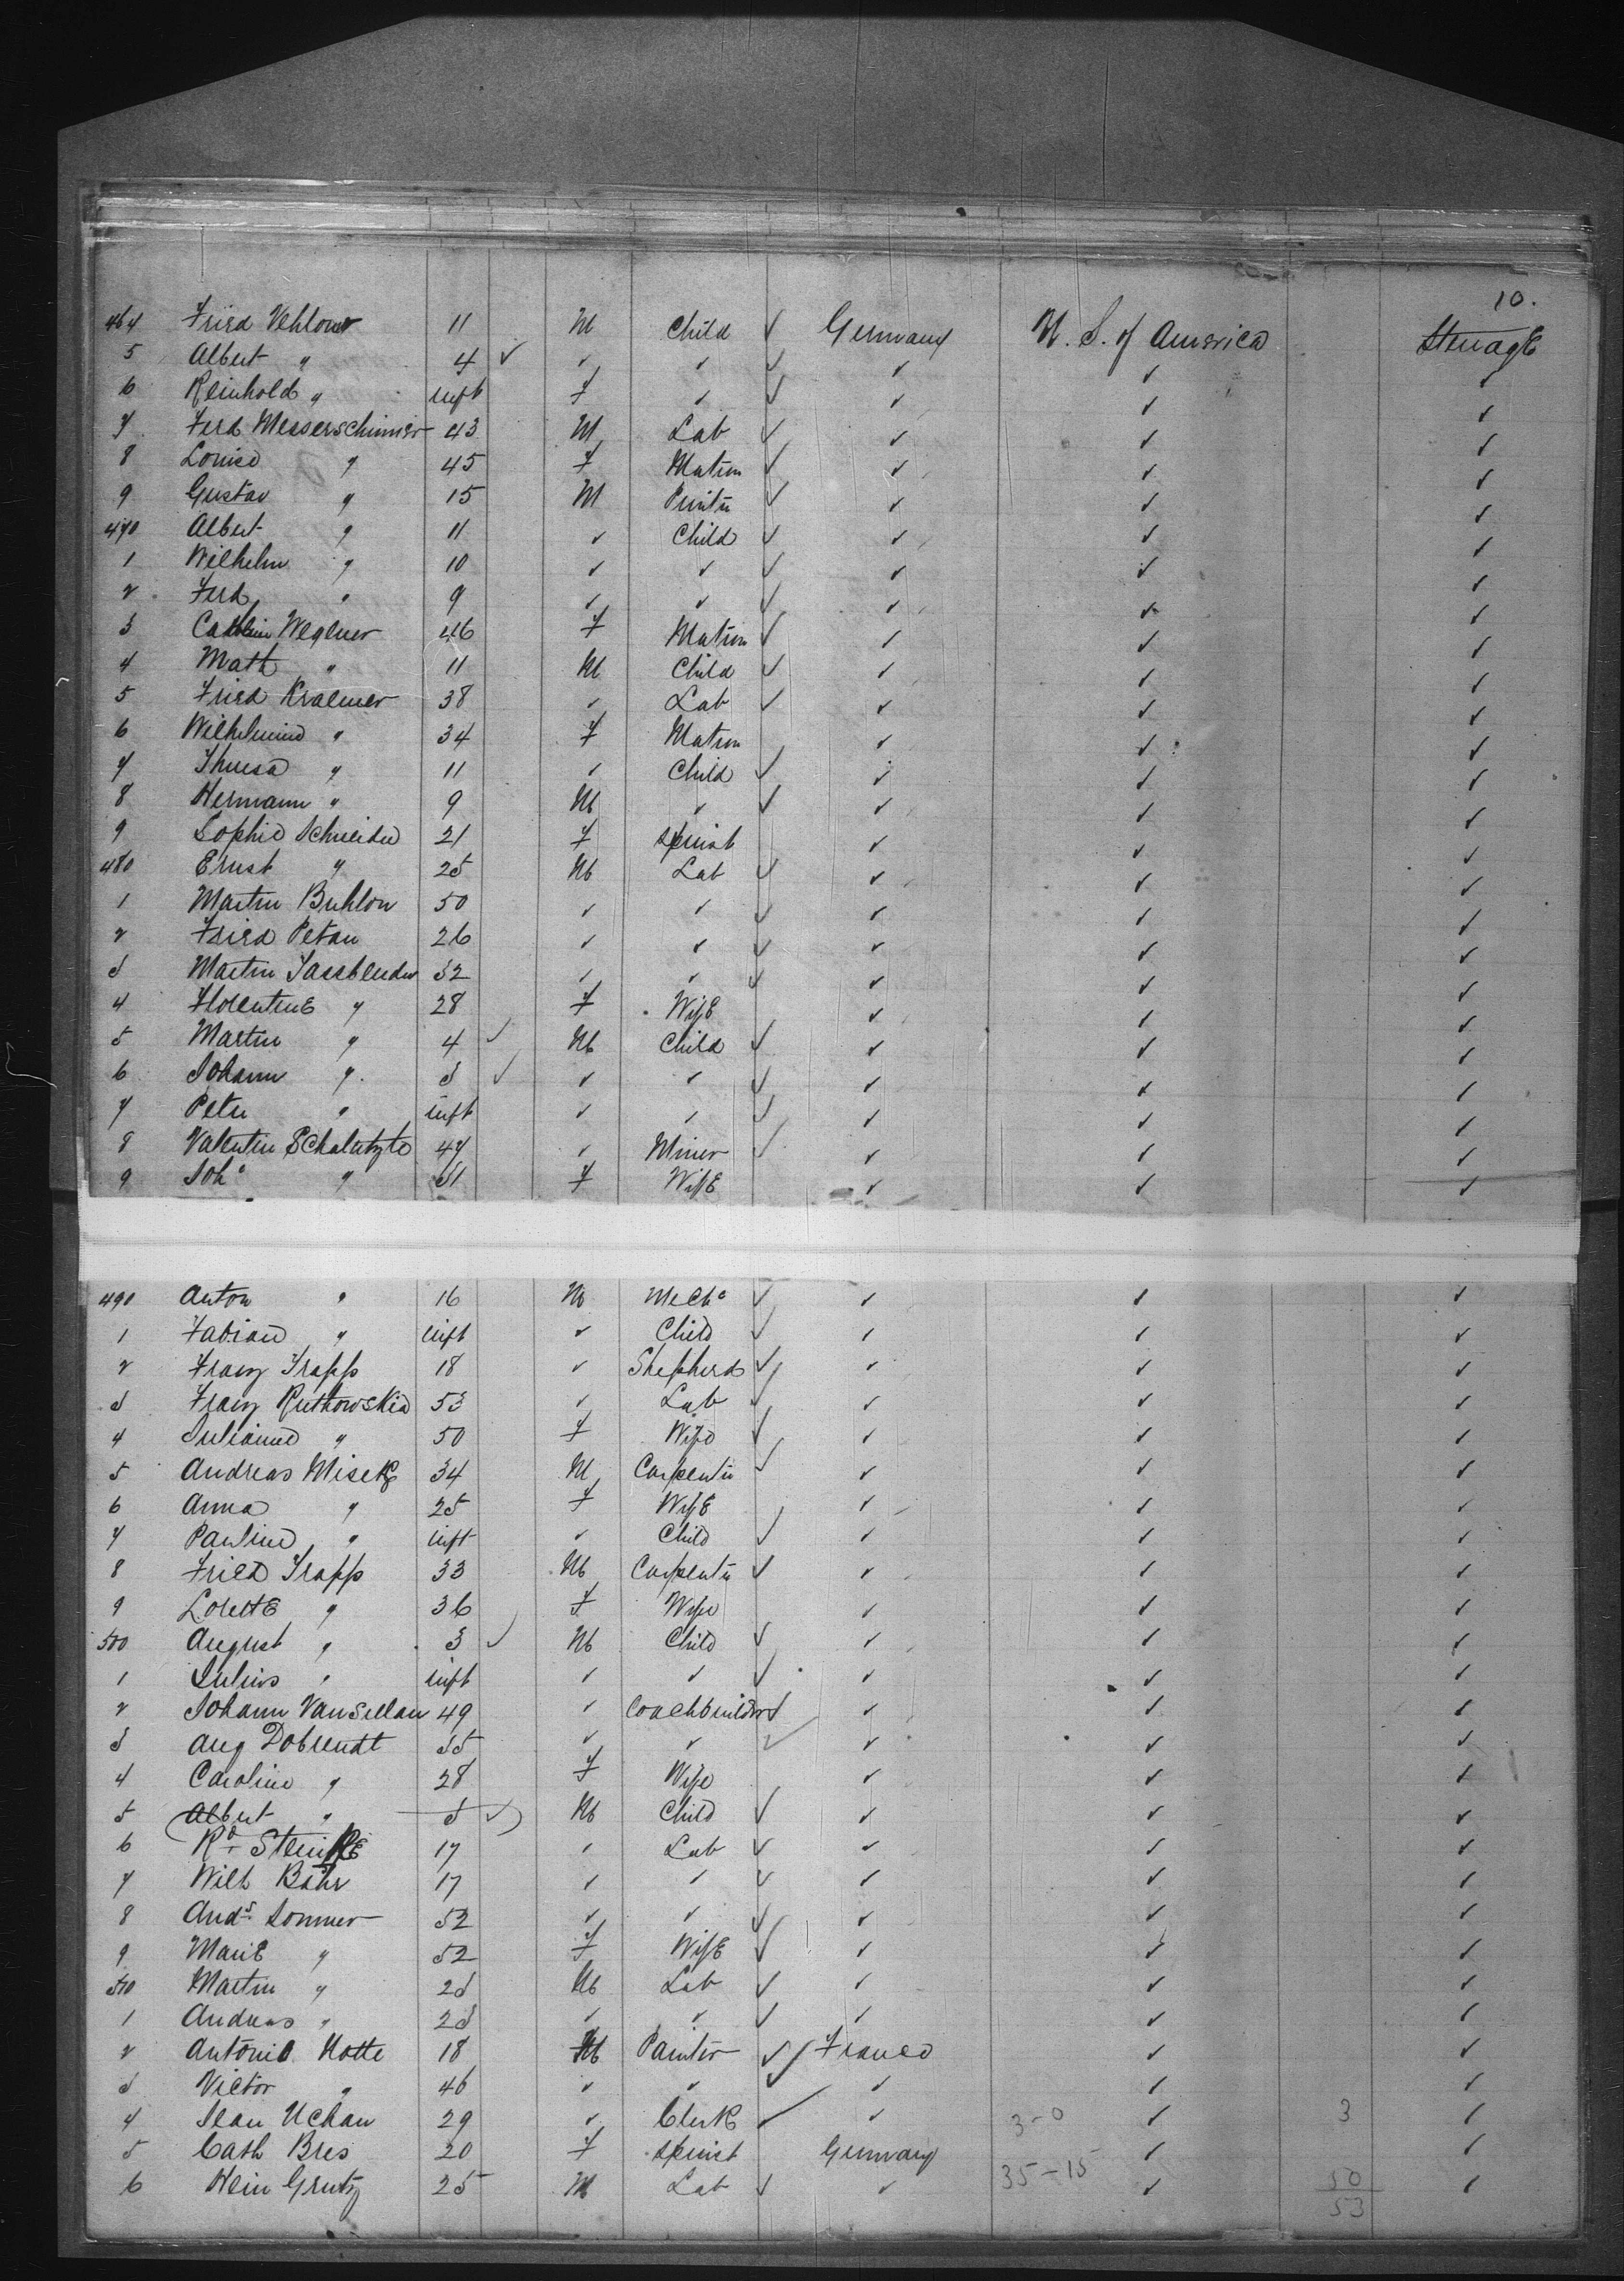 10.
464 Fried Vehlow 11 M Child ✓ Germany U. S. of America Steerage
5 Albert " 4 ✓ ✓ ✓ ✓ ✓ ✓ ✓
6 Reinhold " inft F ✓ ✓ ✓ ✓ ✓
7 Ferd Messerschimier 43 M Lab ✓ ✓ ✓ ✓
8 Louise " 45 F Matron ✓ ✓ ✓ ✓
9 Gustav " 15 M ✓ ✓ ✓ ✓
470 Albert " 11 ✓ Child ✓ ✓ ✓ ✓
1 Wilhelm " 10 ✓ ✓ ✓ ✓ ✓ ✓
2 Ferd " 9 ✓ ✓ ✓ ✓ ✓ ✓
3 Wegener 46 F Matron ✓ ✓ ✓ ✓
4 Math " 11 M Child ✓ ✓ ✓ ✓
5 Fried Kraemer 38 ✓ Lab ✓ ✓ ✓ ✓
6 Wilhelmine " 34 F Matron ✓ ✓ ✓
7 Theresa " 11 ✓ Child ✓ ✓ ✓ ✓
8 Hermann " 9 M ✓ ✓ ✓ ✓ ✓
9 Sophie Schneider 21 F Spinst ✓ ✓ ✓
480 Ernst " 25 M Lab ✓ ✓ ✓ ✓
1 Martin Buhlow 50 ✓ ✓ ✓ ✓ ✓ ✓
2 Fried Petau 26 ✓ ✓ ✓ ✓ ✓ ✓
3 Martin Fassbender 32 ✓ ✓ ✓ ✓ ✓ ✓
4 Florentine " 28 F Wife ✓ ✓ ✓
5 Martin " 4 ✓ M Child ✓ ✓ ✓ ✓
6 Johann " 3 ✓ ✓ ✓ ✓ ✓ ✓ ✓
7 Peter " inft ✓ ✓ ✓ ✓ ✓ ✓
8 Valentin 47 ✓ Miner ✓ ✓ ✓ ✓
9 Joh<sup>a</sup> " 31 F Wife ✓ ✓ ✓
490 Anton " 16 M Mech<sup>c</sup> ✓ ✓ ✓ ✓
1 Fabian " inft ✓ Child ✓ ✓ ✓ ✓
2 Franz Trapp 18 ✓ Shepherd ✓ ✓ ✓ ✓
3 Franz Rutkowskia 53 ✓ Lab ✓ ✓ ✓ ✓
4 Julianne " 50 F Wife ✓ ✓ ✓ ✓
5 Andreas 34 M Carpenter ✓ ✓ ✓ ✓
6 Anna " 25 F Wife ✓ ✓ ✓
7 Pauline " inft ✓ Child ✓ ✓ ✓ ✓
8 Fried Trapp 33 M Carpenter ✓ ✓ ✓ ✓
9 Lorette " 36 F Wife ✓ ✓ ✓
500 August " 3 ✓ M Child ✓ ✓ ✓ ✓
1 Julius " inft ✓ ✓ ✓ ✓ ✓ ✓
2 Johann Vansellau 49 ✓ Coachbuilder ✓ ✓ ✓ ✓
3 Aug Dobrendt 35 ✓ ✓ ✓ ✓ ✓ ✓
4 Caroline " 28 F Wife ✓ ✓ ✓
5 Albert " 3 ✓ M Child ✓ ✓ ✓ ✓
6 R<sup>d</sup> Steinke 17 ✓ Lab ✓ ✓ ✓ ✓
7 Wilh Bähr 17 ✓ ✓ ✓ ✓ ✓ ✓
8 And<sup>s</sup> Sommer 52 ✓ ✓ ✓ ✓ ✓ ✓
9 Marie " 52 F Wife ✓ ✓ ✓ ✓
510 Martin " 23 M Lab ✓ ✓ ✓ ✓
1 Andreas " 23 ✓ ✓ ✓ ✓ ✓ ✓
2 Antonio Hotte 18 M Painter ✓ France ✓ ✓
3 Victor " 46 ✓ ✓ ✓ ✓ ✓ ✓
4 Jean Uchau 29 ✓ Clerk ✓ ✓ 3-0 ✓ 3 ✓
5 Cath Bres 20 F Spinst Germany ✓ ✓
6 Hein Grutz 25 M Lab ✓ ✓ 35-15 ✓ 50 ✓
53